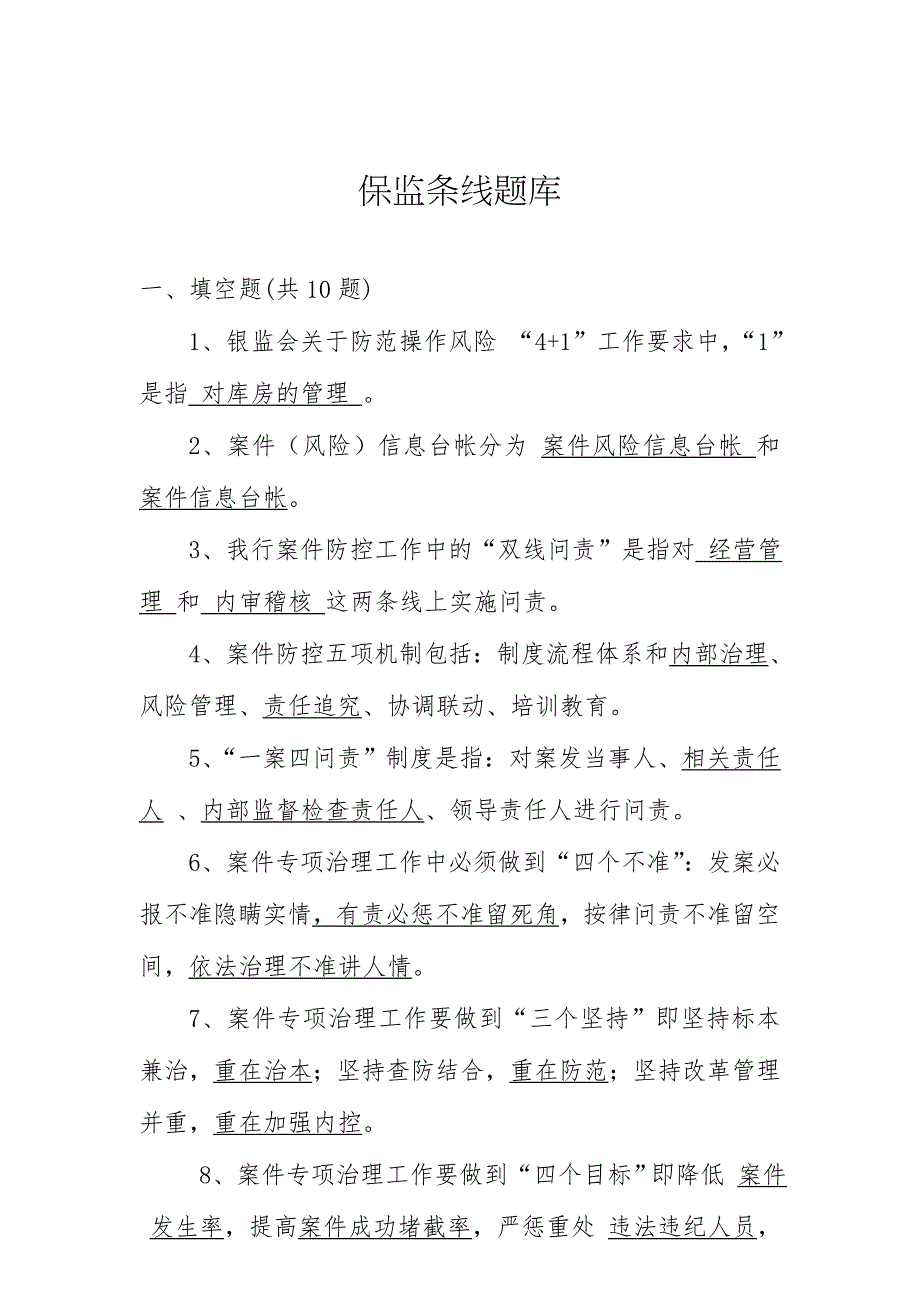 保监条线题库
一、填空题(共10题)
1、银监会关于防范操作风险 “4+1”工作要求中，“1”
是指 对库房的管理 。
2、案件（风险）信息台帐分为 案件风险信息台帐 和
案件信息台帐。
3、我行案件防控工作中的“双线问责”是指对 经营管
理 和 内审稽核 这两条线上实施问责。
4、案件防控五项机制包括：制度流程体系和内部治理、
风险管理、责任追究、协调联动、培训教育。
5、“一案四问责”制度是指：对案发当事人、相关责任
人 、内部监督检查责任人、领导责任人进行问责。
6、案件专项治理工作中必须做到“四个不准”：发案必
报不准隐瞒实情，有责必惩不准留死角，按律问责不准留空
间，依法治理不准讲人情。
7、案件专项治理工作要做到“三个坚持”即坚持标本
兼治，重在治本；坚持查防结合，重在防范；坚持改革管理
并重，重在加强内控。
8、案件专项治理工作要做到“四个目标”即降低 案件
发生率，提高案件成功堵截率，严惩重处 违法违纪人员，